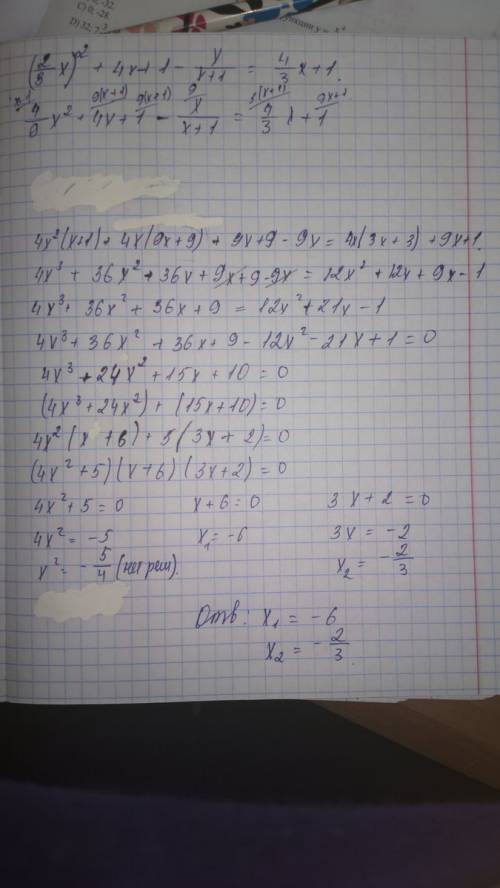 C) 0; -28.
(2/3 x)² + 4x+1 - x/(x+1) = 4/3 x+1.
9(x+1) 9(x+1) 9 9x+1
4/9 x² + 4x+1 - x/(x+1) = 4/3 x+1
4x²(x+1)+4x(9x+9)+9x+9-9x=4x(3x+3)+9x+1.
4x³+36x²+36x+9x+9-9x=12x²+12x+9x-1
4x³+36x²+36x+9=12x²+21x-1
4x³+36x²+36x+9-12x²-21x+1=0
4x³+24x²+15x+10=0
(4x³+24x²)+(15x+10)=0
4x²(x+6)+5(3x+2)=0
(4x²+5)(x+6)(3x+2)=0
4x²+5=0 x+6=0 3x+2=0
4x²=-5 x₁=-6 3x=-2
x²=-5/4 (нет реш). x₂=-2/3
Отв: x₁=-6
x₂=-2/3